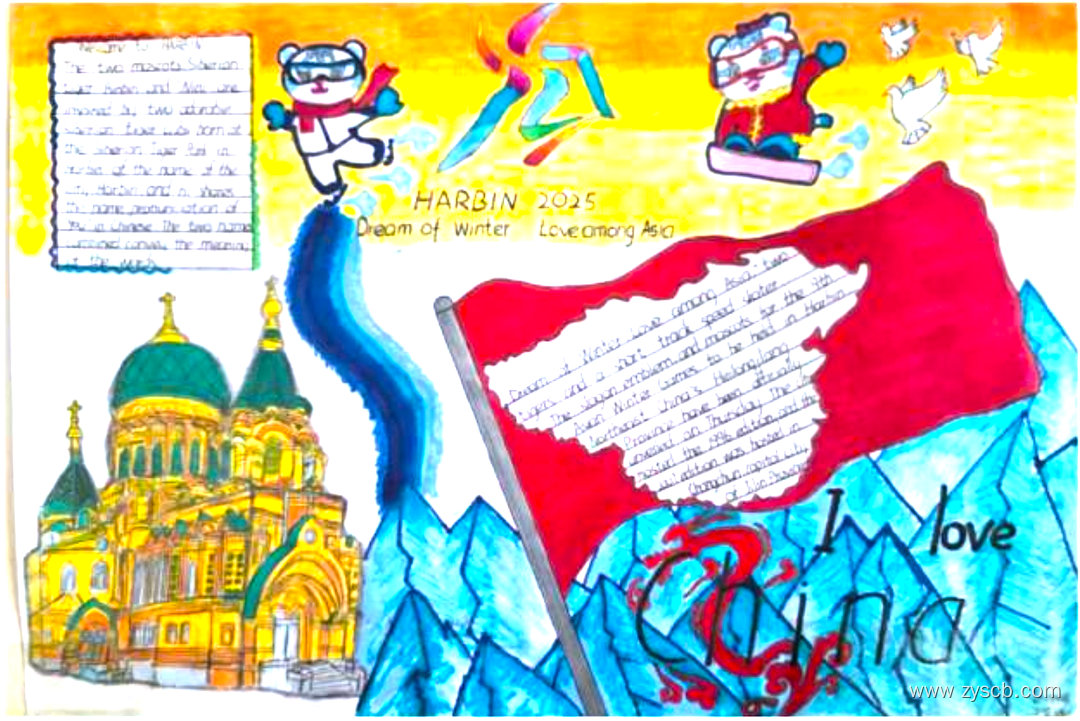 Welcome to
The two mascots Siberian
tiger Binbin and Nini are
inspired by two adorable
Siberian tiger cubs born at
the Siberian Tiger Park in
the name of the
city Harbin and ni shares
the same pronunciation of
you in Chinese The two names
combined convey the meaning
of
HARBIN 2025
Dream of Winter Love among Asia
Dream of Winter Love among Asia: two
tigers and a short track speed skater
The slogan emblem and mascots for the 9th
Asian Winter Games to be held in Harbin
Northeast China's Heilongjiang
Province have been officially
unveiled on Thursday The
hosted the 1996 edition and the
edition was hosted in
Changchun capital city
of Jilin Province
I love
China
www.zyscb.com